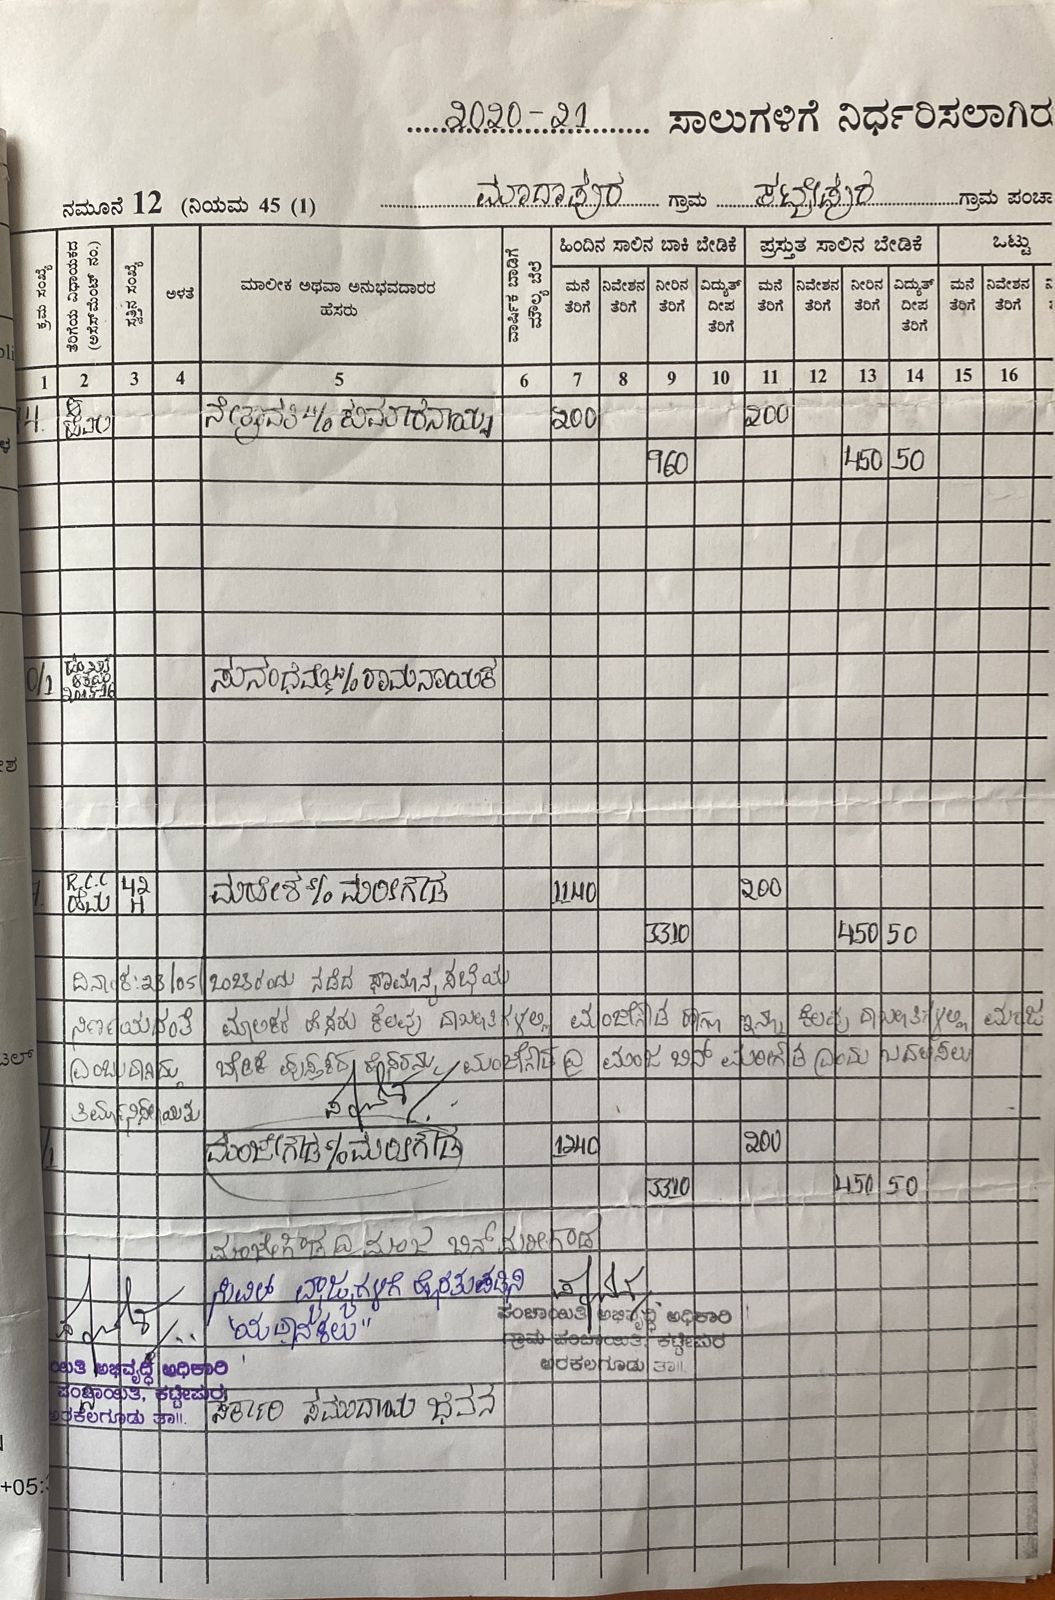 2020-21 ಸಾಲುಗಳಿಗೆ ನಿರ್ಧರಿಸಲಾಗಿರ
ನಮೂನೆ 12 (ನಿಯಮ 45 (1) ಮಾದಾಪುರ ಗ್ರಾಮ ಕಟ್ಟೇಪುರ ಗ್ರಾಮ ಪಂಚಾ
ಕ್ರಮ ಸಂಖ್ಯೆ ತೆರಿಗೆಯ ವಿಧಾಯಕದ (ಅಸೆಸ್‌ಮೆಂಟ್ ನಂ.) ಸ್ವತ್ತಿನ ಸಂಖ್ಯೆ ಅಳತೆ ಮಾಲೀಕ ಅಥವಾ ಅನುಭವದಾರರ ಹೆಸರು ವಾರ್ಷಿಕ ಬಾಡಿಗೆ ಮೌಲ್ಯ ಬೆಲೆ ಹಿಂದಿನ ಸಾಲಿನ ಬಾಕಿ ಬೇಡಿಕೆ ಪ್ರಸ್ತುತ ಸಾಲಿನ ಬೇಡಿಕೆ ಒಟ್ಟು
ಮನೆ ತೆರಿಗೆ ನಿವೇಶನ ತೆರಿಗೆ ನೀರಿನ ತೆರಿಗೆ ವಿದ್ಯುತ್ ದೀಪ ತೆರಿಗೆ ಮನೆ ತೆರಿಗೆ ನಿವೇಶನ ತೆರಿಗೆ ನೀರಿನ ತೆರಿಗೆ ವಿದ್ಯುತ್ ದೀಪ ತೆರಿಗೆ ಮನೆ ತೆರಿಗೆ ನಿವೇಶನ ತೆರಿಗೆ
1 2 3 4 5 6 7 8 9 10 11 12 13 14 15 16
4. ನೇತ್ರಾವತಿ w/o ಕುಮಾರನಾಯ್ಕ 200 200
960 450 50
0/1 2015-16 ಸುನಂಧಮ್ಮ w/o ರಾಮನಾಯಕ
R.C.C ಹೆಮ 42 ಮಹೇಶ s/o ಮರೀಗೌಡ 1140 200
3310 450 50
ದಿನಾಂಕ: 23/05/ ರಂದು ನಡೆದ ಸಾಮಾನ್ಯ ಸಭೆಯ
ನಿರ್ಣಯದಂತೆ ಮಾಲೀಕರ ಹೆಸರು ಕೆಲವು ದಾಖಲಾತಿಗಳಲ್ಲಿ ಮಂಜೇಗೌಡ ಹಾಗೂ ಇನ್ನೂ ಕೆಲವು ದಾಖಲಾತಿಗಳಲ್ಲಿ ಮಂಜ
ಎಂಬುದಾಗಿದ್ದು ಮಂಜೇಗೌಡ @ ಮಂಜ ಬಿನ್ ಮರೀಗೌಡ ಎಂದು ಬದಲಿಸಲು
ತೀರ್ಮಾನಿಸಲಾಯಿತು
/1 ಮಂಜೇಗೌಡ s/o ಮರೀಗೌಡ 1240 200
3310 450 50
ಮಂಜೇಗೌಡ @ ಮಂಜ ಬಿನ್ ಮರೀಗೌಡ
ಸಿವಿಲ್ ವ್ಯಾಜ್ಯಗಳಿಗೆ ಹೊರತುಪಡಿಸಿ
"ಯಥಾನಕಲು"
ಪಂಚಾಯಿತಿ ಅಭಿವೃದ್ಧಿ ಅಧಿಕಾರಿ
ಗ್ರಾಮ ಪಂಚಾಯಿತಿ, ಕಟ್ಟೇಪುರ
ಅರಕಲಗೂಡು ತಾ||.
ಯಿತಿ ಅಭಿವೃದ್ಧಿ ಅಧಿಕಾರಿ
ಪಂಚಾಯಿತಿ, ಕಟ್ಟೇಪುರ
ಅರಕಲಗೂಡು ತಾ||.
ಸರ್ಕಾರಿ ಸಮುದಾಯ ಭವನ
+05: